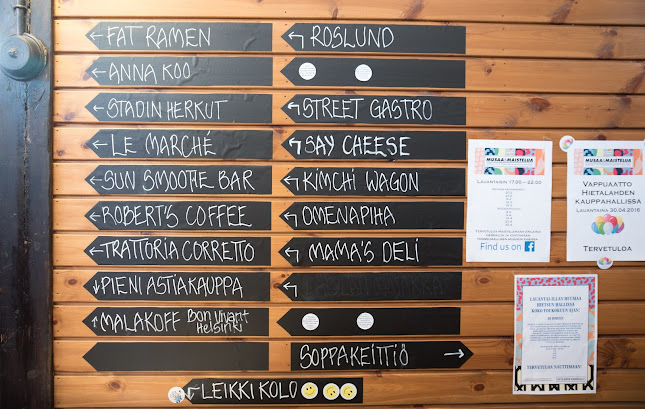 ← FAT RAMEN
← ANNA KOO
← STADIN HERKUT
← LE MARCHÉ
← SUN SMOOTIE BAR
← ROBERT'S COFFEE
← TRATTORIA CORRETTO
↓ PIENI ASTIAKAUPPA
↑ MALAKOFF Bon Vivant Helsinki
↰ ROSLUND
↰
↰ STREET GASTRO
↰ SAY CHEESE
↰ KIMCHI WAGON
↰ OMENAPIHA
↰ MAMA'S DELI
↰
SOPPAKEITTIÖ →
← LEIKKI KOLO
MUSAA&MAISTELUA
LAUANTAISIN 17.00 – 22.00
Find us on f
MUSAA&MAISTELUA
VAPPUAATTO
HIETALAHDEN
KAUPPAHALLISSA
LAUANTAINA 30.04.2016
TERVETULOA
LAUANTAI-ILLAN HUUMAA
HIETSUN HALLISSA
KOKO TOUKOKUUN AJAN!
TERVETULOA NAUTTIMAAN!